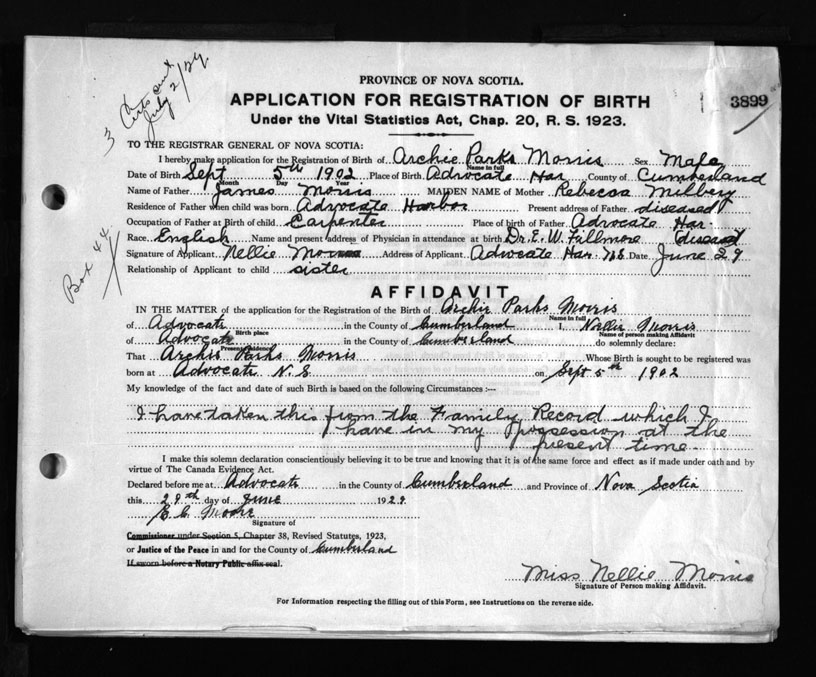 3 Certs sent
July 2/29
PROVINCE OF NOVA SCOTIA.
APPLICATION FOR REGISTRATION OF BIRTH
3899
Under the Vital Statistics Act, Chap. 20, R. S. 1923.
TO THE REGISTRAR GENERAL OF NOVA SCOTIA:
I hereby make application for the Registration of Birth of Archie Parks Morris Sex Male
Name in full
Date of Birth Sept 5th 1902 Place of Birth Advocate Har County of Cumberland
Month Day Year
Name of Father James Morris MAIDEN NAME of Mother Rebecca Milbery
Residence of Father when child was born Advocate Harbor Present address of Father diseased
Occupation of Father at Birth of child Carpenter Place of birth of Father Advocate Har
Race English Name and present address of Physician in attendance at birth Dr. E. W. Fillmore diseased
Signature of Applicant Nellie Morris Address of Applicant Advocate Har. N.S. Date June 29
Relationship of Applicant to child sister
Box 44
AFFIDAVIT
IN THE MATTER of the application for the Registration of the Birth of Archie Parks Morris
Name in full
of Advocate in the County of Cumberland I, Nellie Morris
Birth place Name of person making Affidavit
of Advocate in the County of Cumberland do solemnly declare:
Present residence
That Archie Parks Morris Whose Birth is sought to be registered was
born at Advocate N.S on Sept 5th 1902
My knowledge of the fact and date of such Birth is based on the following Circumstances :—
I have taken this from the Family Record which I
have in my possession at the
present time.
I make this solemn declaration conscientiously believing it to be true and knowing that it is of the same force and effect as if made under oath and by
virtue of The Canada Evidence Act.
Declared before me at Advocate in the County of Cumberland and Province of Nova Scotia
this 29th day of June 1929
E. C. Moore
Signature of
Commissioner under Section 5, Chapter 38, Revised Statutes, 1923,
or Justice of the Peace in and for the County of Cumberland
If sworn before a Notary Public affix seal.
Miss Nellie Morris
Signature of Person making Affidavit.
For Information respecting the filling out of this Form, see Instructions on the reverse side.